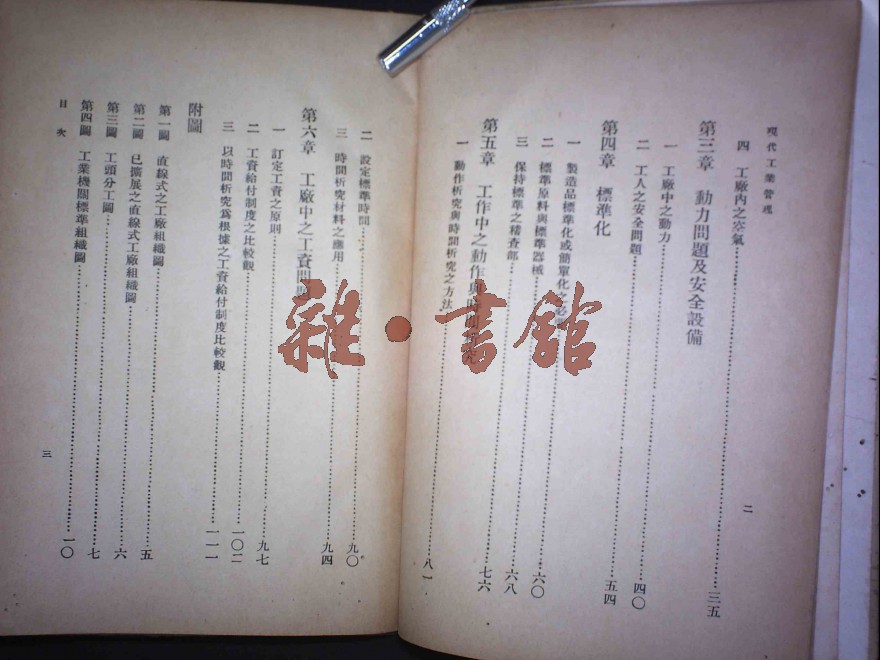 現代工業管理
四 工廠內之空氣……三五
第三章 動力問題及安全設備
一 工廠中之動力……四〇
二 工人之安全問題……五四
第四章 標準化
一 製造品標準化或簡單化之必
二 標準原料與標準器械……六〇
三 保持標準之稽查部……六八
第五章 工作中之動作與時間研究……七六
一 動作析究與時間析究之方法……八一
二
二 設定標準時間……九〇
三 時間析究材料之應用……九四
第六章 工廠中之工資問題
一 訂定工資之原則……九七
二 工資給付制度之比較觀……一〇二
三 以時間析究爲根據之工資給付制度比較觀……一一一
附圖
第一圖 直線式之工廠組織圖……五
第二圖 已擴展之直線式工廠組織圖……六
第三圖 工頭分工圖……七
第四圖 工業機關標準組織圖……一〇
目次
三
雜·書館